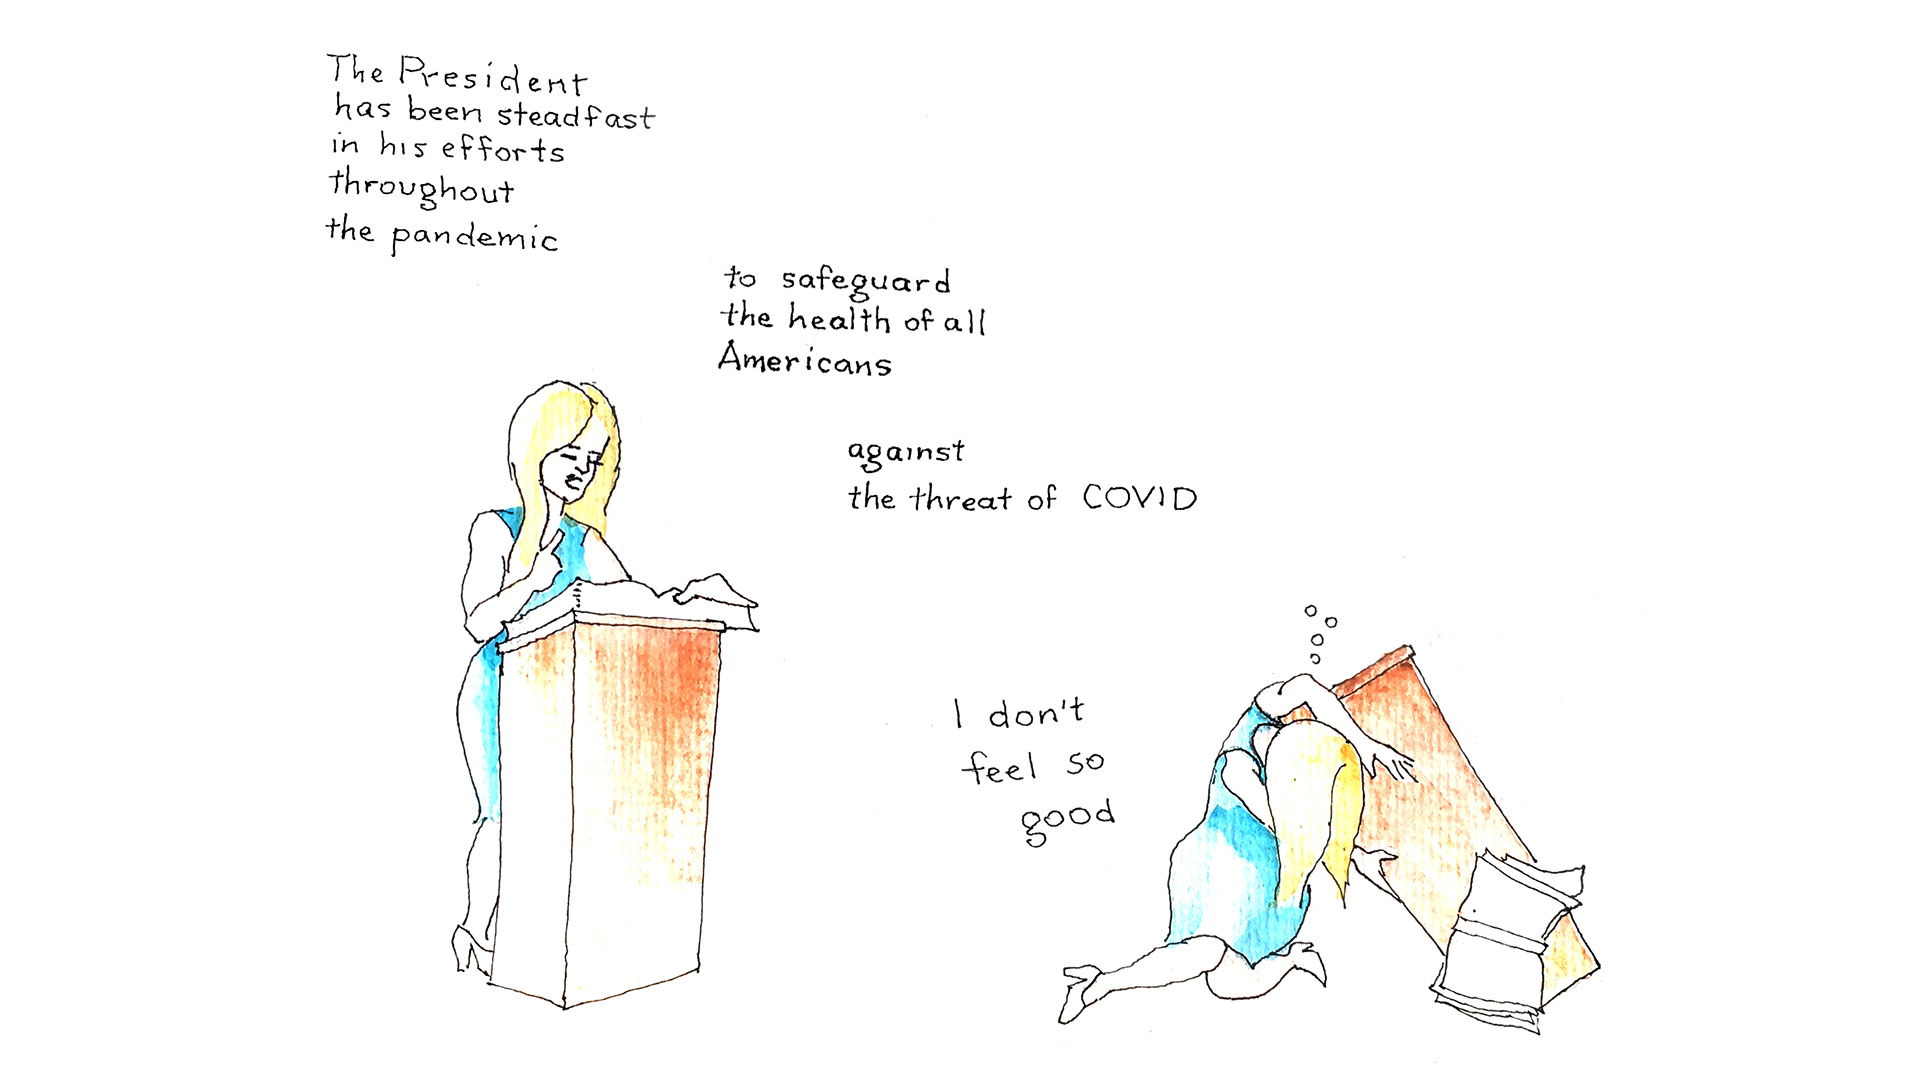 The President
has been steadfast
in his efforts
throughout
the pandemic
to safeguard
the health of all
Americans
against
the threat of COVID
I don't
feel so
good